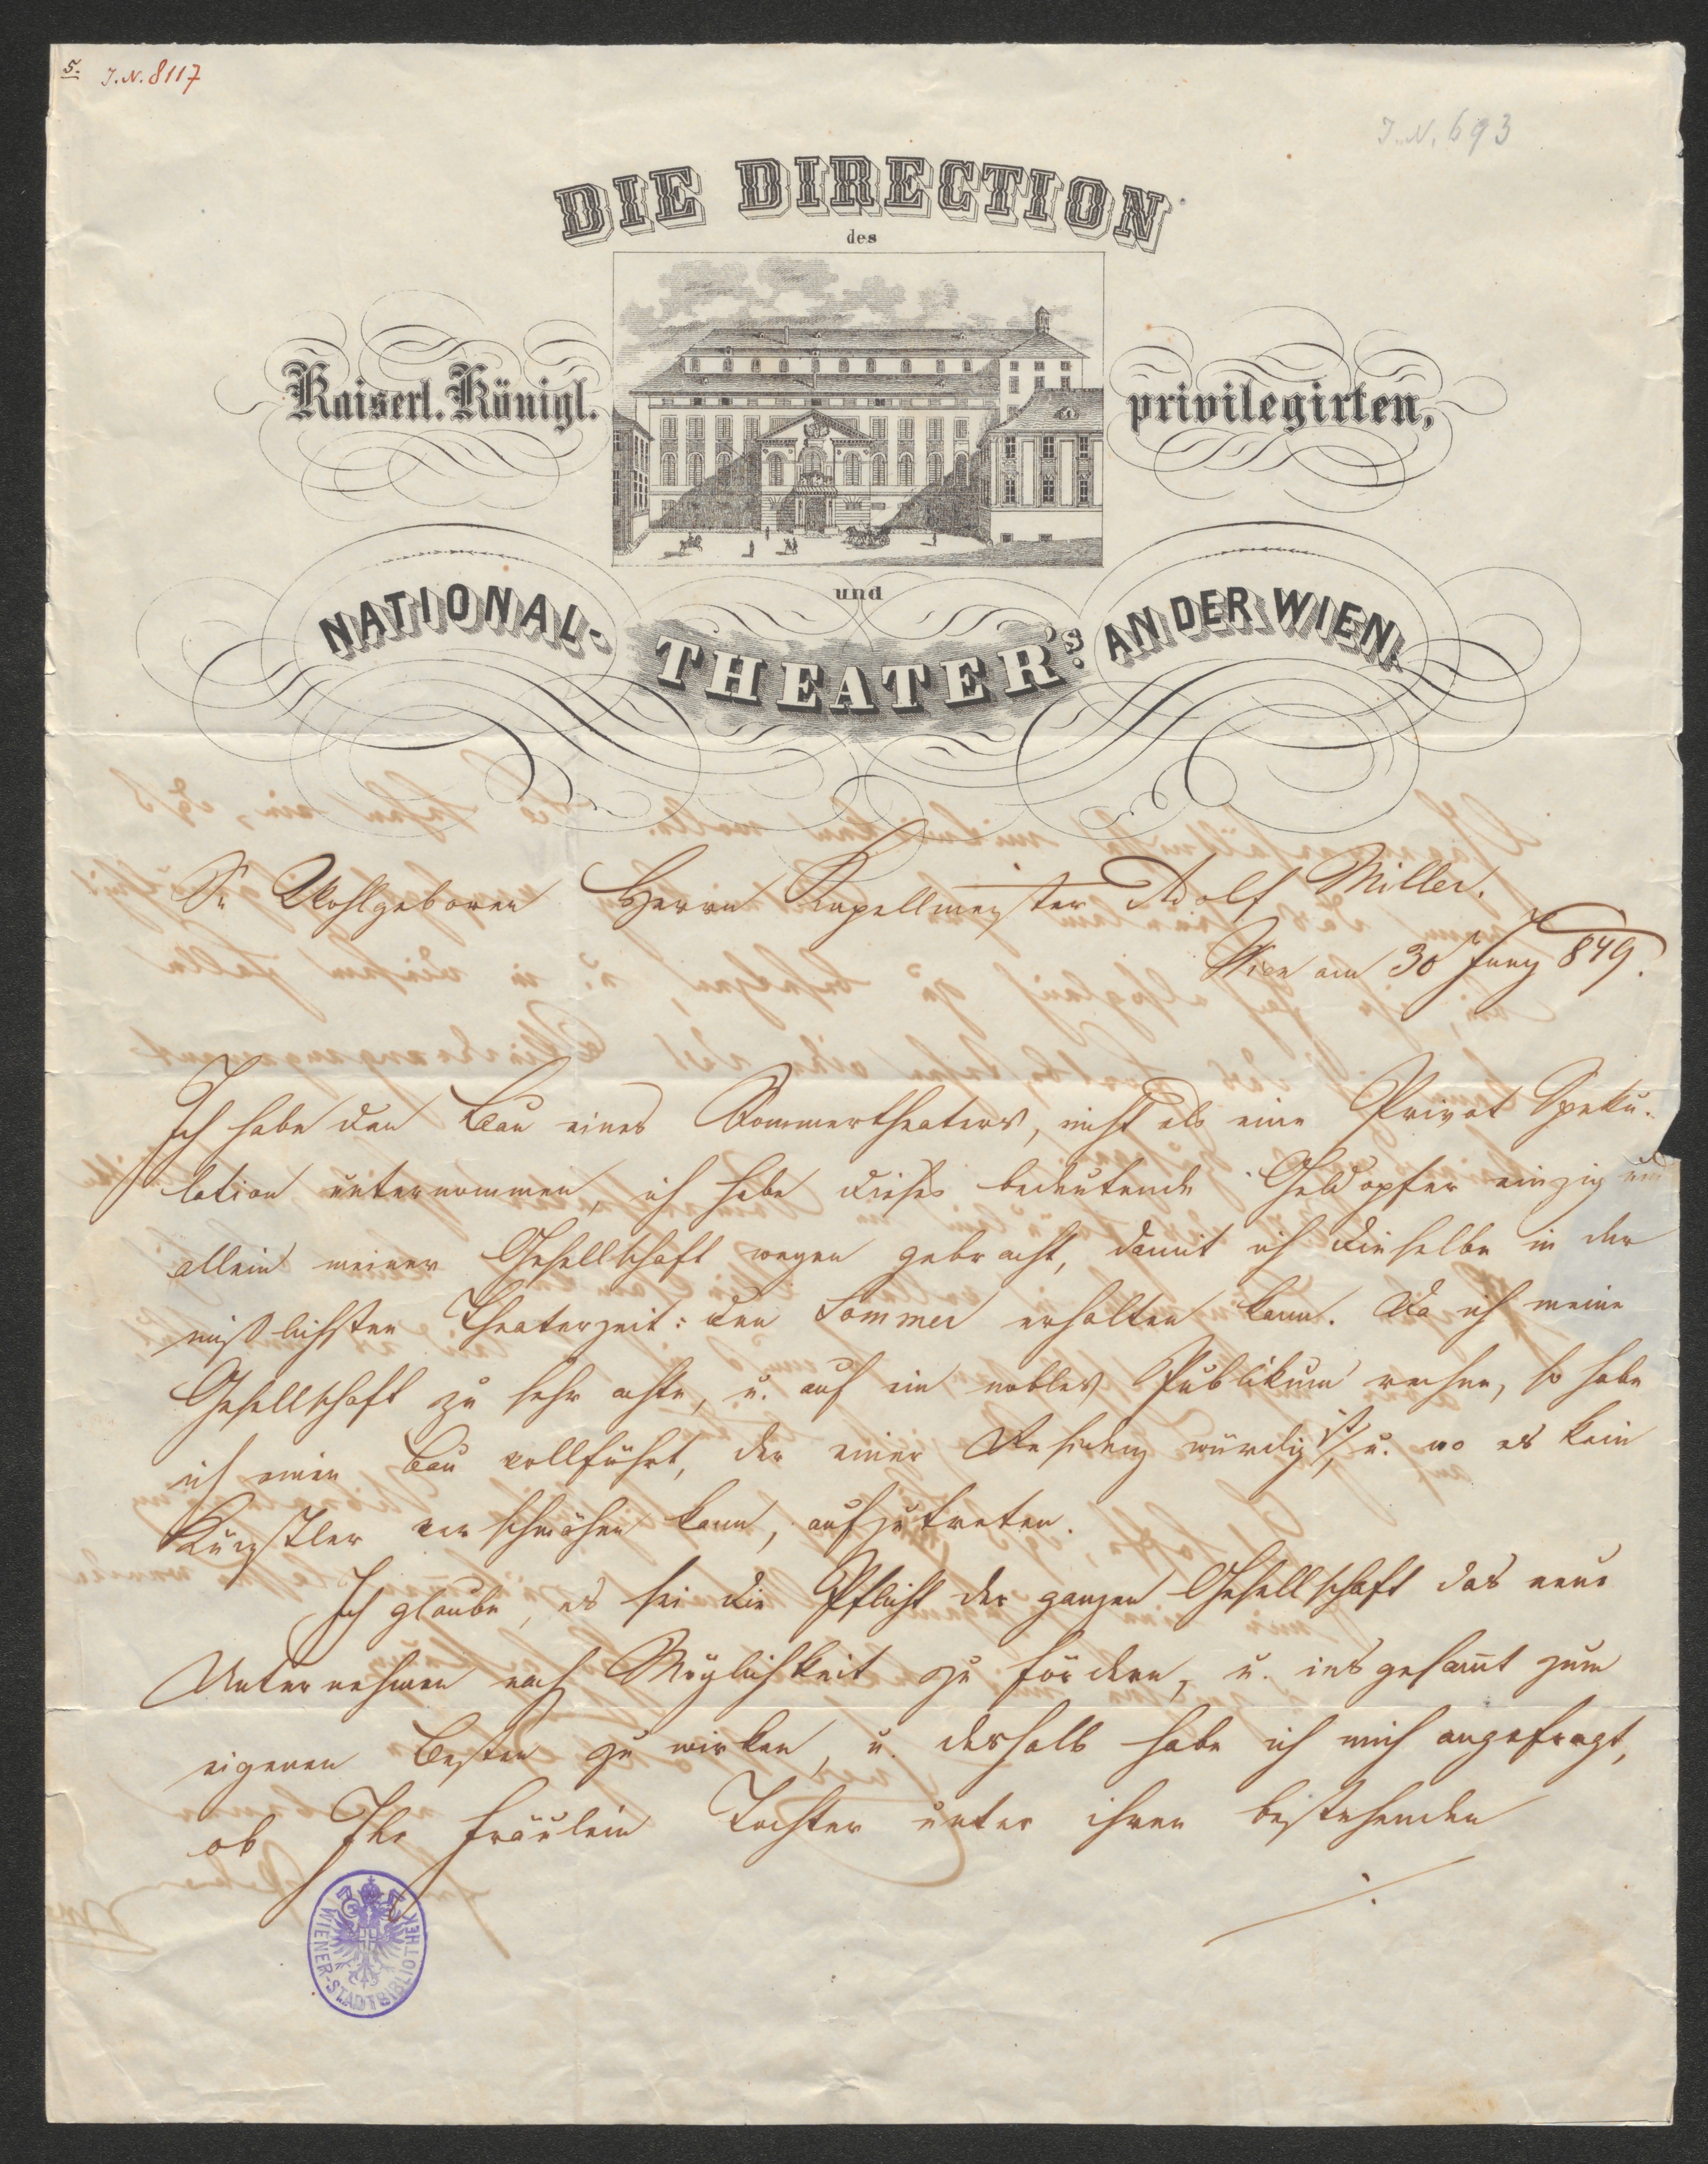 5.
J.N. 8117
J.N. 693
DIE DIRECTION
des
Kaiserl. Königl. privilegirten,
und
NATIONAL- THEATER's. AN DER WIEN.
Sr Wohlgeboren Herrn Kapellmeister Adolf Miller.
Wien am 30 Juny 849.
Ich habe den Bau eines Sommertheaters, nicht als eine Privat Speku-
lation unternommen, ich habe dieses bedeutende Geldopfer einzig und
allein meiner Gesellschaft wegen gebracht, damit ich dieselbe in der
mißlichsten Theaterzeit: den Sommer erhalten kann. Da ich meine
Gesellschaft zu sehr achte, u. auf ein nobles Publikum rechne, so habe
ich einen Bau vollführt, der einer Residenz würdig ist, u. wo es kein
Künstler verschmähen kann, aufzutreten.
Ich glaube, es sei die Pflicht der ganzen Gesellschaft das neue
Unternehmen nach Möglichkeit zu fördern, u. insgesamt zum
eigenen Besten zu wirken, u. deshalb habe ich mich angefragt,
ob Ihr Fräulein Tochter unter ihren bestehenden
./.
WIENER-STADTBIBLIOTHEK